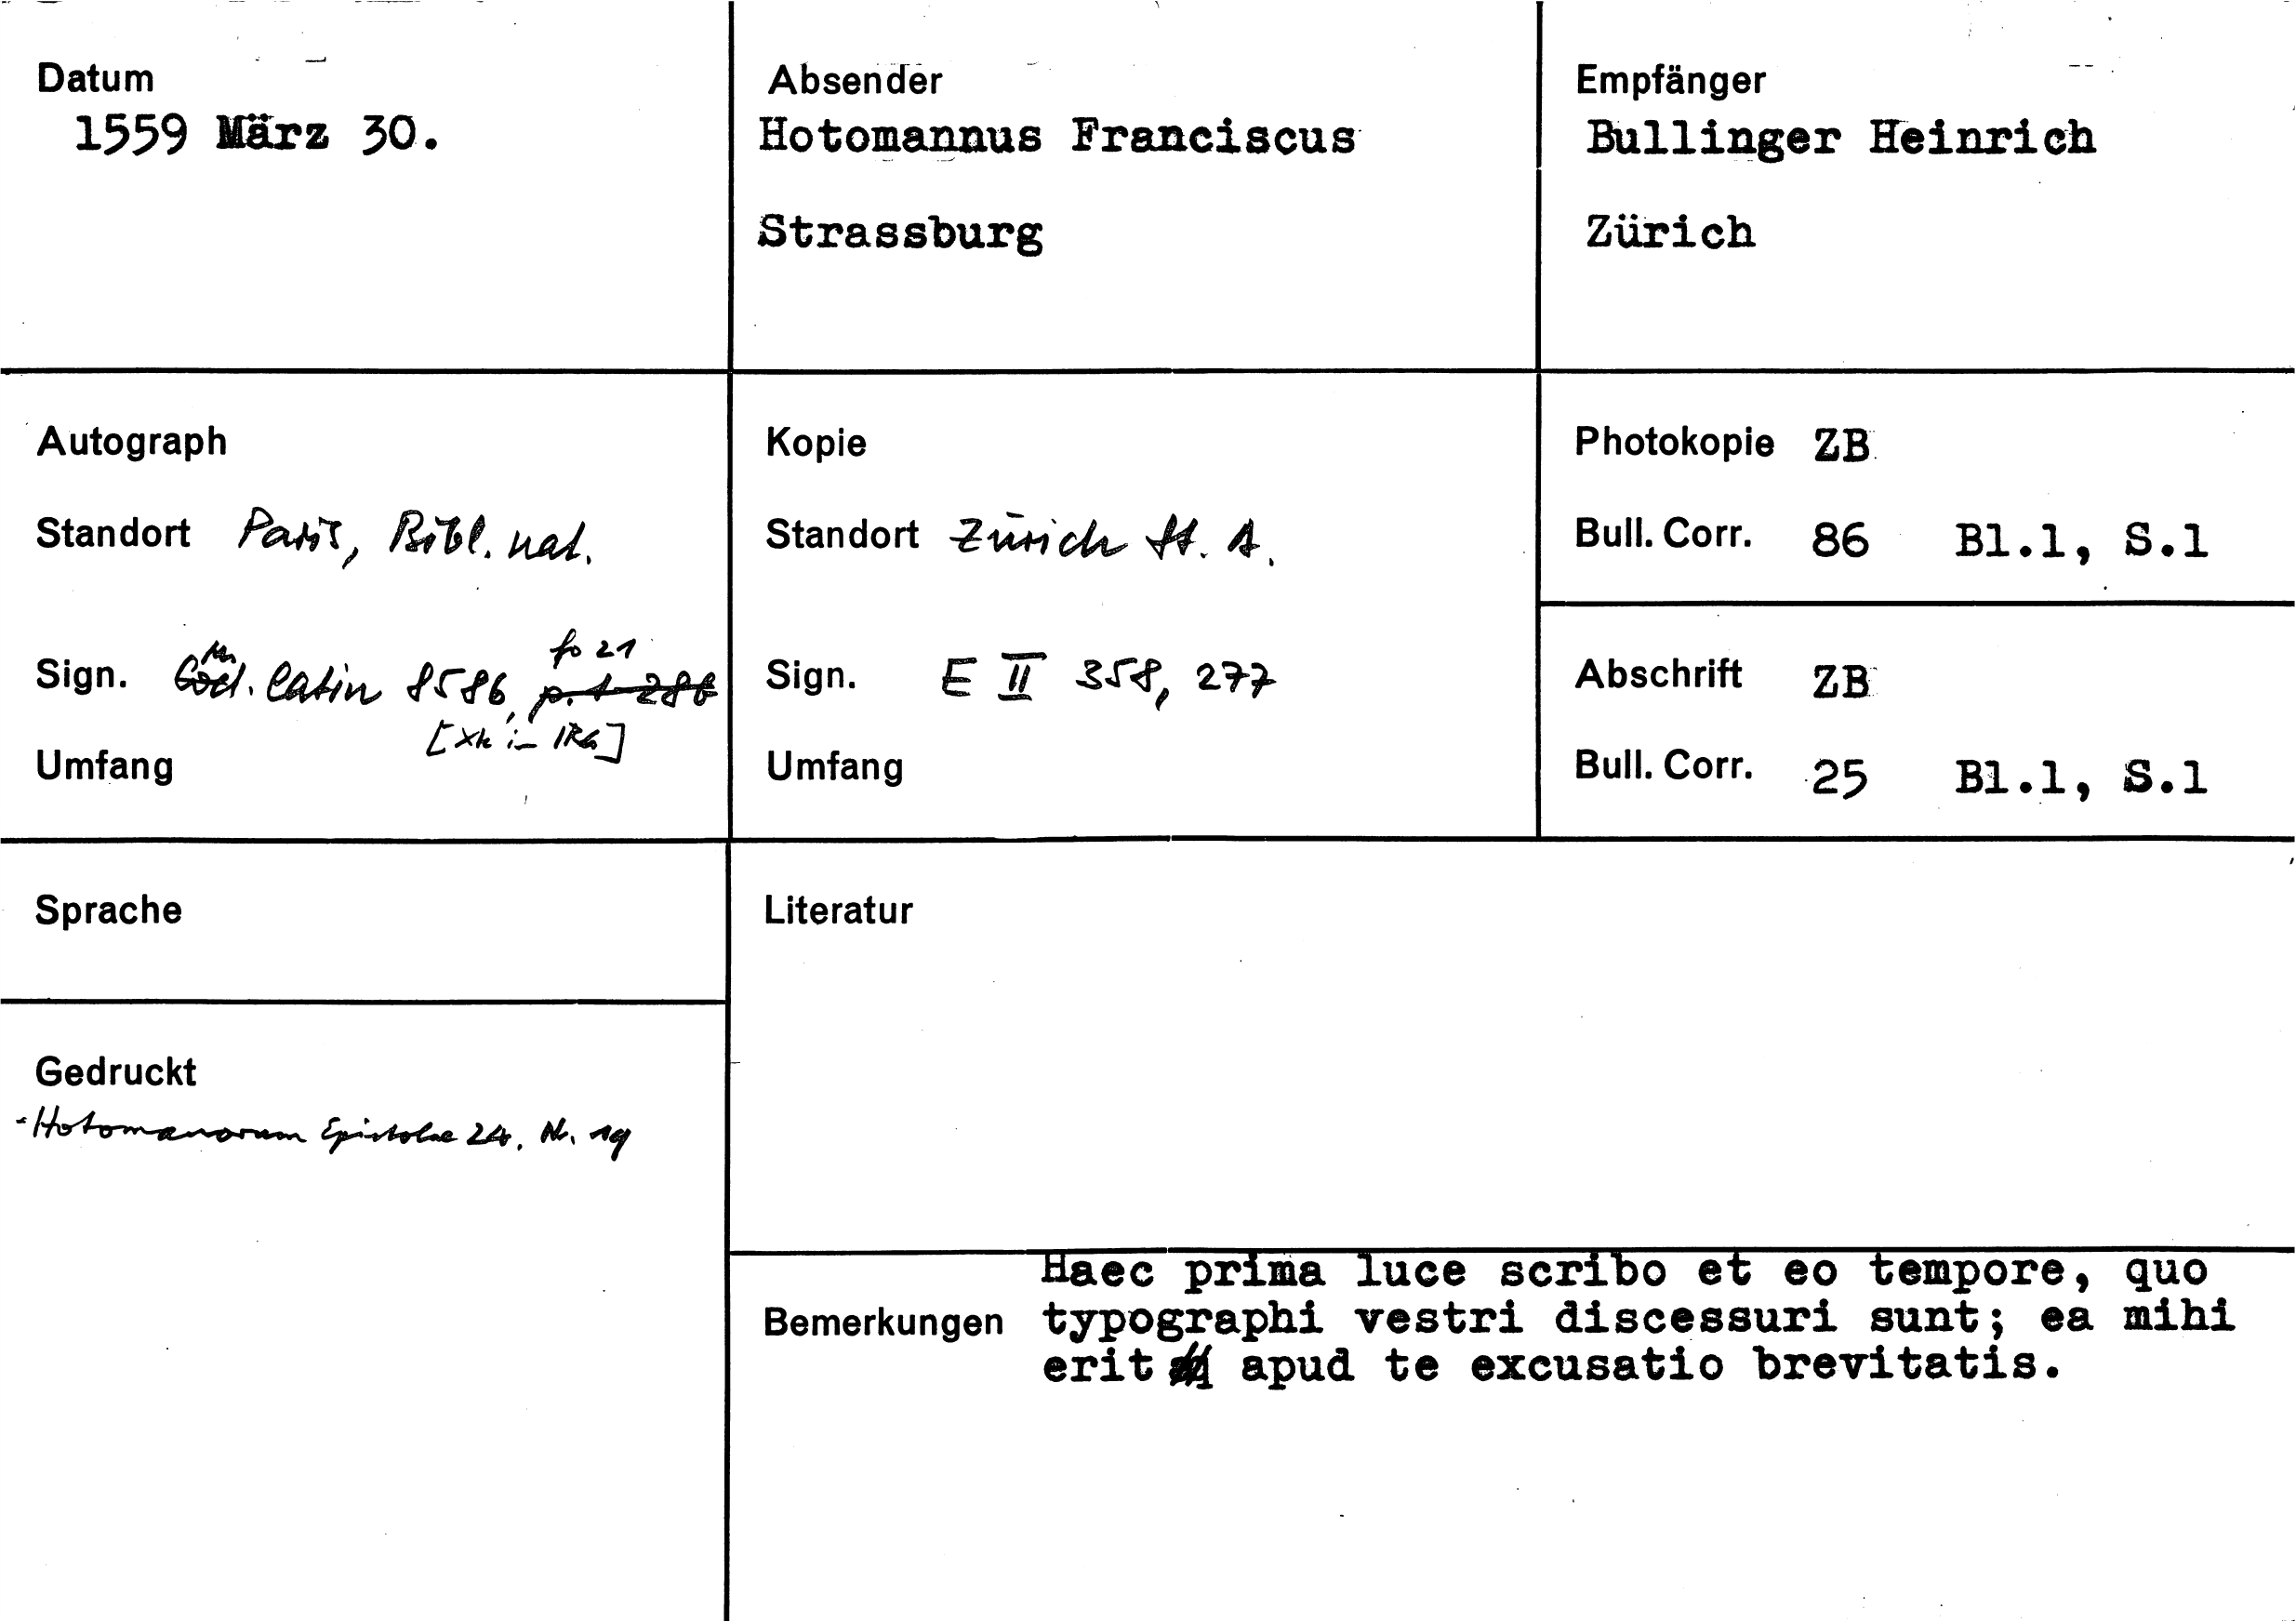 Datum
1559 März 30.
Absender
Hotomannus Franciscus
Strassburg
Empfänger
Bullinger Heinrich
Zürich
Autograph
Standort Paris, Bibl. nat.
fo 21
Sign. Cod. latin 8586, p. 1-286
[Xk in IRG]
Umfang
Kopie
Standort Zürich St. A.
Sign. E II 358, 277
Umfang
Photokopie ZB
Bull. Corr. 86 Bl.1, S.1
Abschrift ZB
Bull. Corr. 25 Bl.1, S.1
Sprache
Gedruckt
- Hotomanorum Epistolae 24, Nr. 19
Literatur
Haec prima luce scribo et eo tempore, quo
Bemerkungen typographi vestri discessuri sunt; ea mihi
erit apud te excusatio brevitatis.